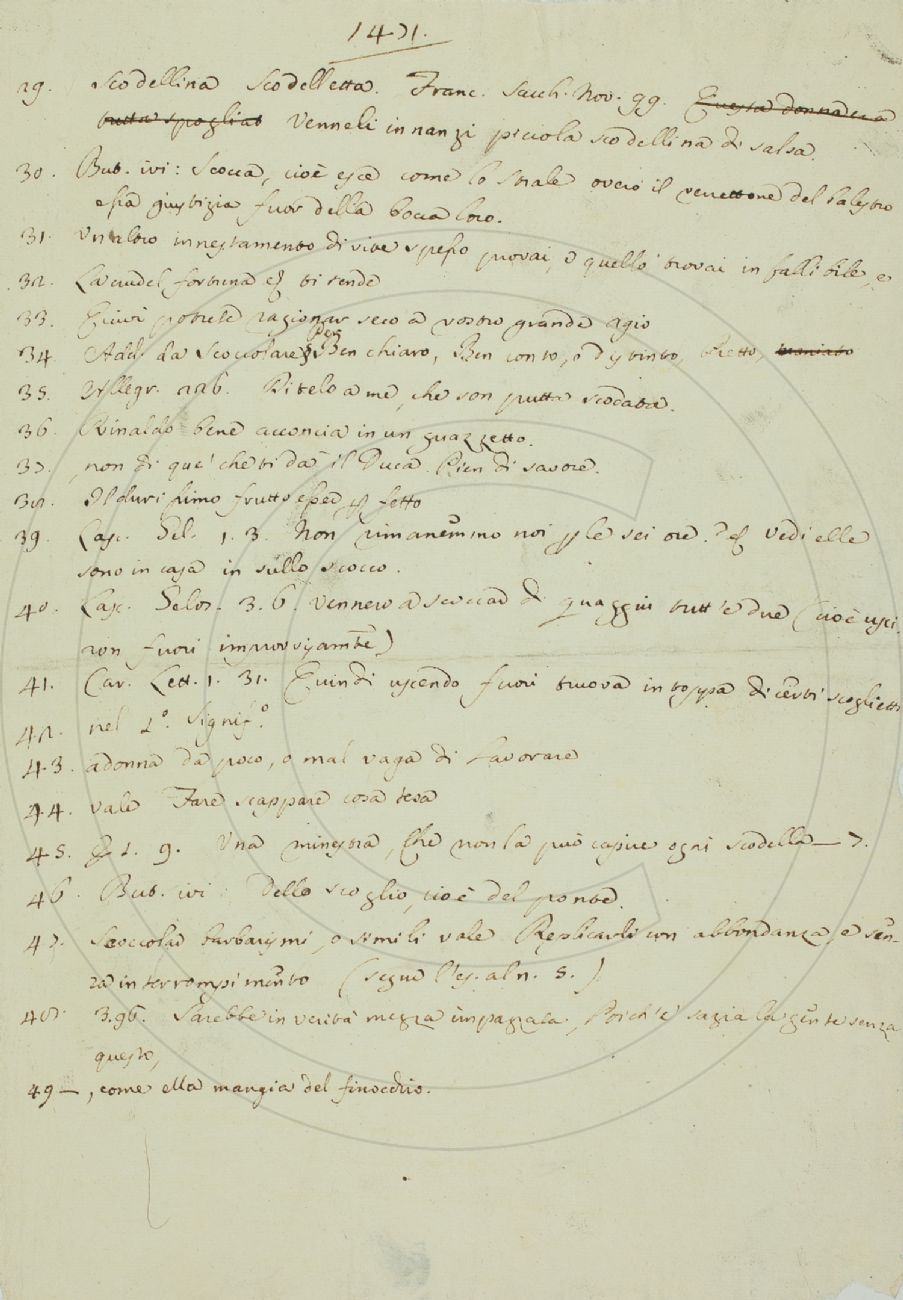 1471.
29. Scodellina Scodelletta. Franc. Sacch. Nov. 99. Questa donna era
tutta spogliat Venneli innanzi piccola scodellina di salsa.
30. But. ivi: Scocca, cioè esce come lo strale overo il verrettone del balestro
essa giustizia fuor della bocca loro.
31. Un altro innestamento di vite spesso provai, e quello trovai in fallibile, e
32. La crudel fortuna ti rende
33. Quivi potrete ragionar seco a vostro grande agio
34 Add. da Scoccolare; Per Ben chiaro, Ben conto, o distinto, pretto, maniato
35. Allegr. 226. Ditelo a me, che son putta scodata.
36. Rinaldo bene acconcia in un guazzetto.
37. non di que' che ti dà il Duca. Pien di savore.
38. Il durissimo frutto fetto
39. Lasc. Gel. 1. 3. Non rimanemmo noi per le sei ore? vedi elle
sono in casa in sullo scocco.
40. Lasc. Gelos. 3. 6. vennero a scoccar di quaggiù tutt'e due (cioè usci-
ron fuori improvvisamte)
41. Car. Lett. 1. 31. Quindi uscendo fuori truova intoppa di certi scoglietti
42. nel 2º. Signifº.
43. a donna da poco, o mal vaga di Lavorare
44. vale Fare scappare cosa tesa
45. 2. 9. Una minestra, Che non la può capire ogni scodella — 7.
46. But. ivi: Dello scoglio, cioè del ponte.
47. Scoccolar barbarismi, o simili vale Replicarli con abbondanza, e sen-
za interrompimento (segue l'es. al n. 5.)
48. 3.96. Sarebbe in verità mezza impazzata, Poich'è sazia la gente senza
questo,
49 —, come ella mangia del finocchio.